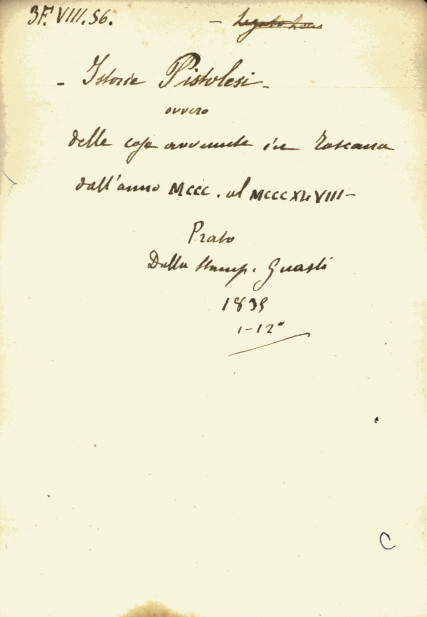 3F. VIII. 56.
- Istorie Pistolesi -
ovvero
delle cose avvenute in Toscana
dall'anno MCCC. al MCCCXLVIII -
Prato
Dalla Stamp. Guasti
1835
1-12°
C